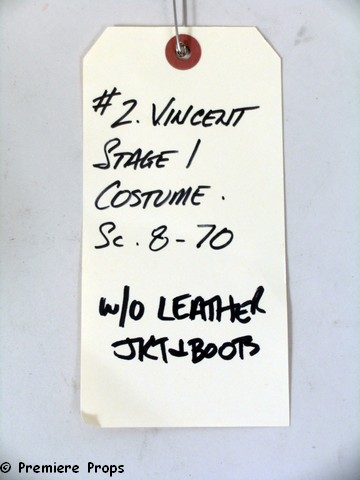 #2. VINCENT
STAGE 1
COSTUME.
Sc. 8-70
w/o LEATHER
JKT & BOOTS
© Premiere Props